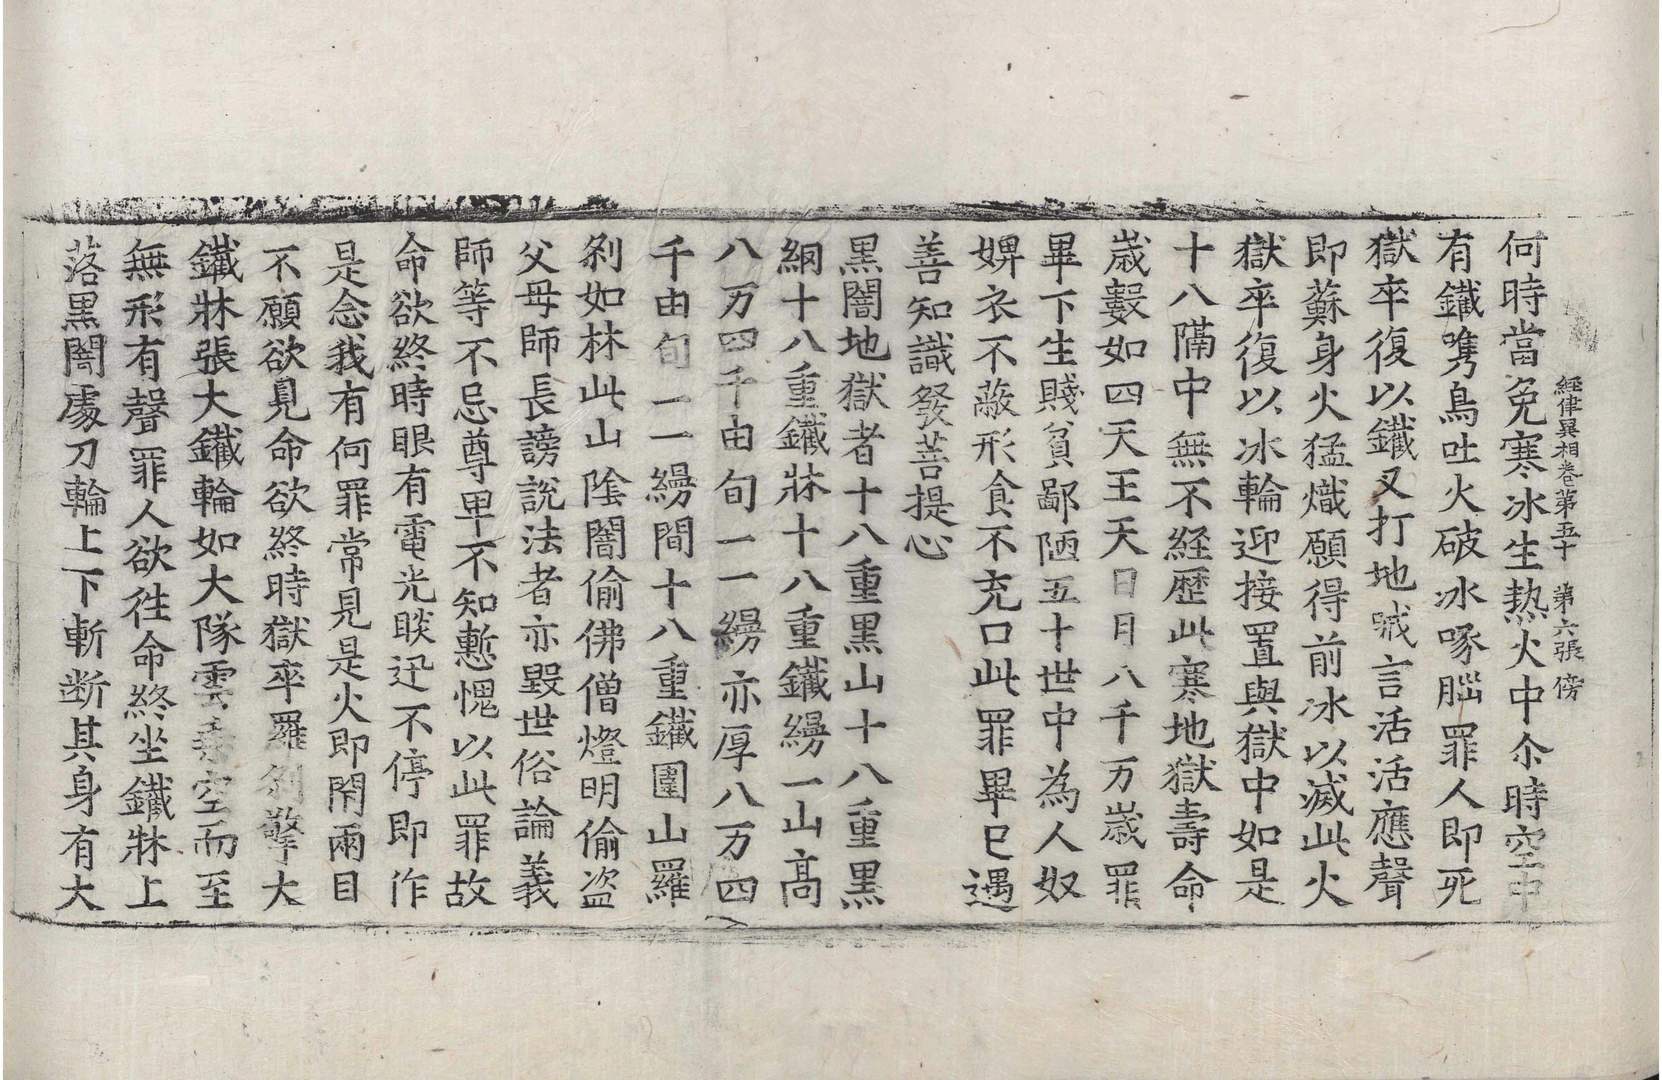 經律異相卷第五十　第六張　傍
何時當免寒冰生熱火中尒時空中
有鐵嶲鳥吐火破冰啄腦罪人即死
獄卒復以鐵叉打地喊言活活應聲
即蘇身火猛熾願得前冰以滅此火
獄卒復以冰輪迎接置與獄中如是
十八隔中無不經歷此寒地獄壽命
歲數如四天王天日月八千万歲罪
畢下生賤貧鄙陋五十世中為人奴
婢衣不蔽形食不充口此罪畢已遇
善知識發菩提心
黑闇地獄者十八重黑山十八重黑
網十八重鐵牀十八重鐵縵一山高
八万四千由旬一一縵亦厚八万四
千由旬一一縵間十八重鐵圍山羅
列如林此山陰闇偷佛僧燈明偷盜
父母師長謗說法者亦毀世俗論義
師等不忌尊卑不知慙愧以此罪故
命欲終時眼有電光睒迅不停即作
是念我有何罪常見是火即閇兩目
不願欲見命欲終時獄卒羅剎擎大
鐵牀張大鐵輪如大隊雲乘空而至
無形有聲罪人欲徃命終坐鐵牀上
落黑闇處刀輪上下斬断其身有大